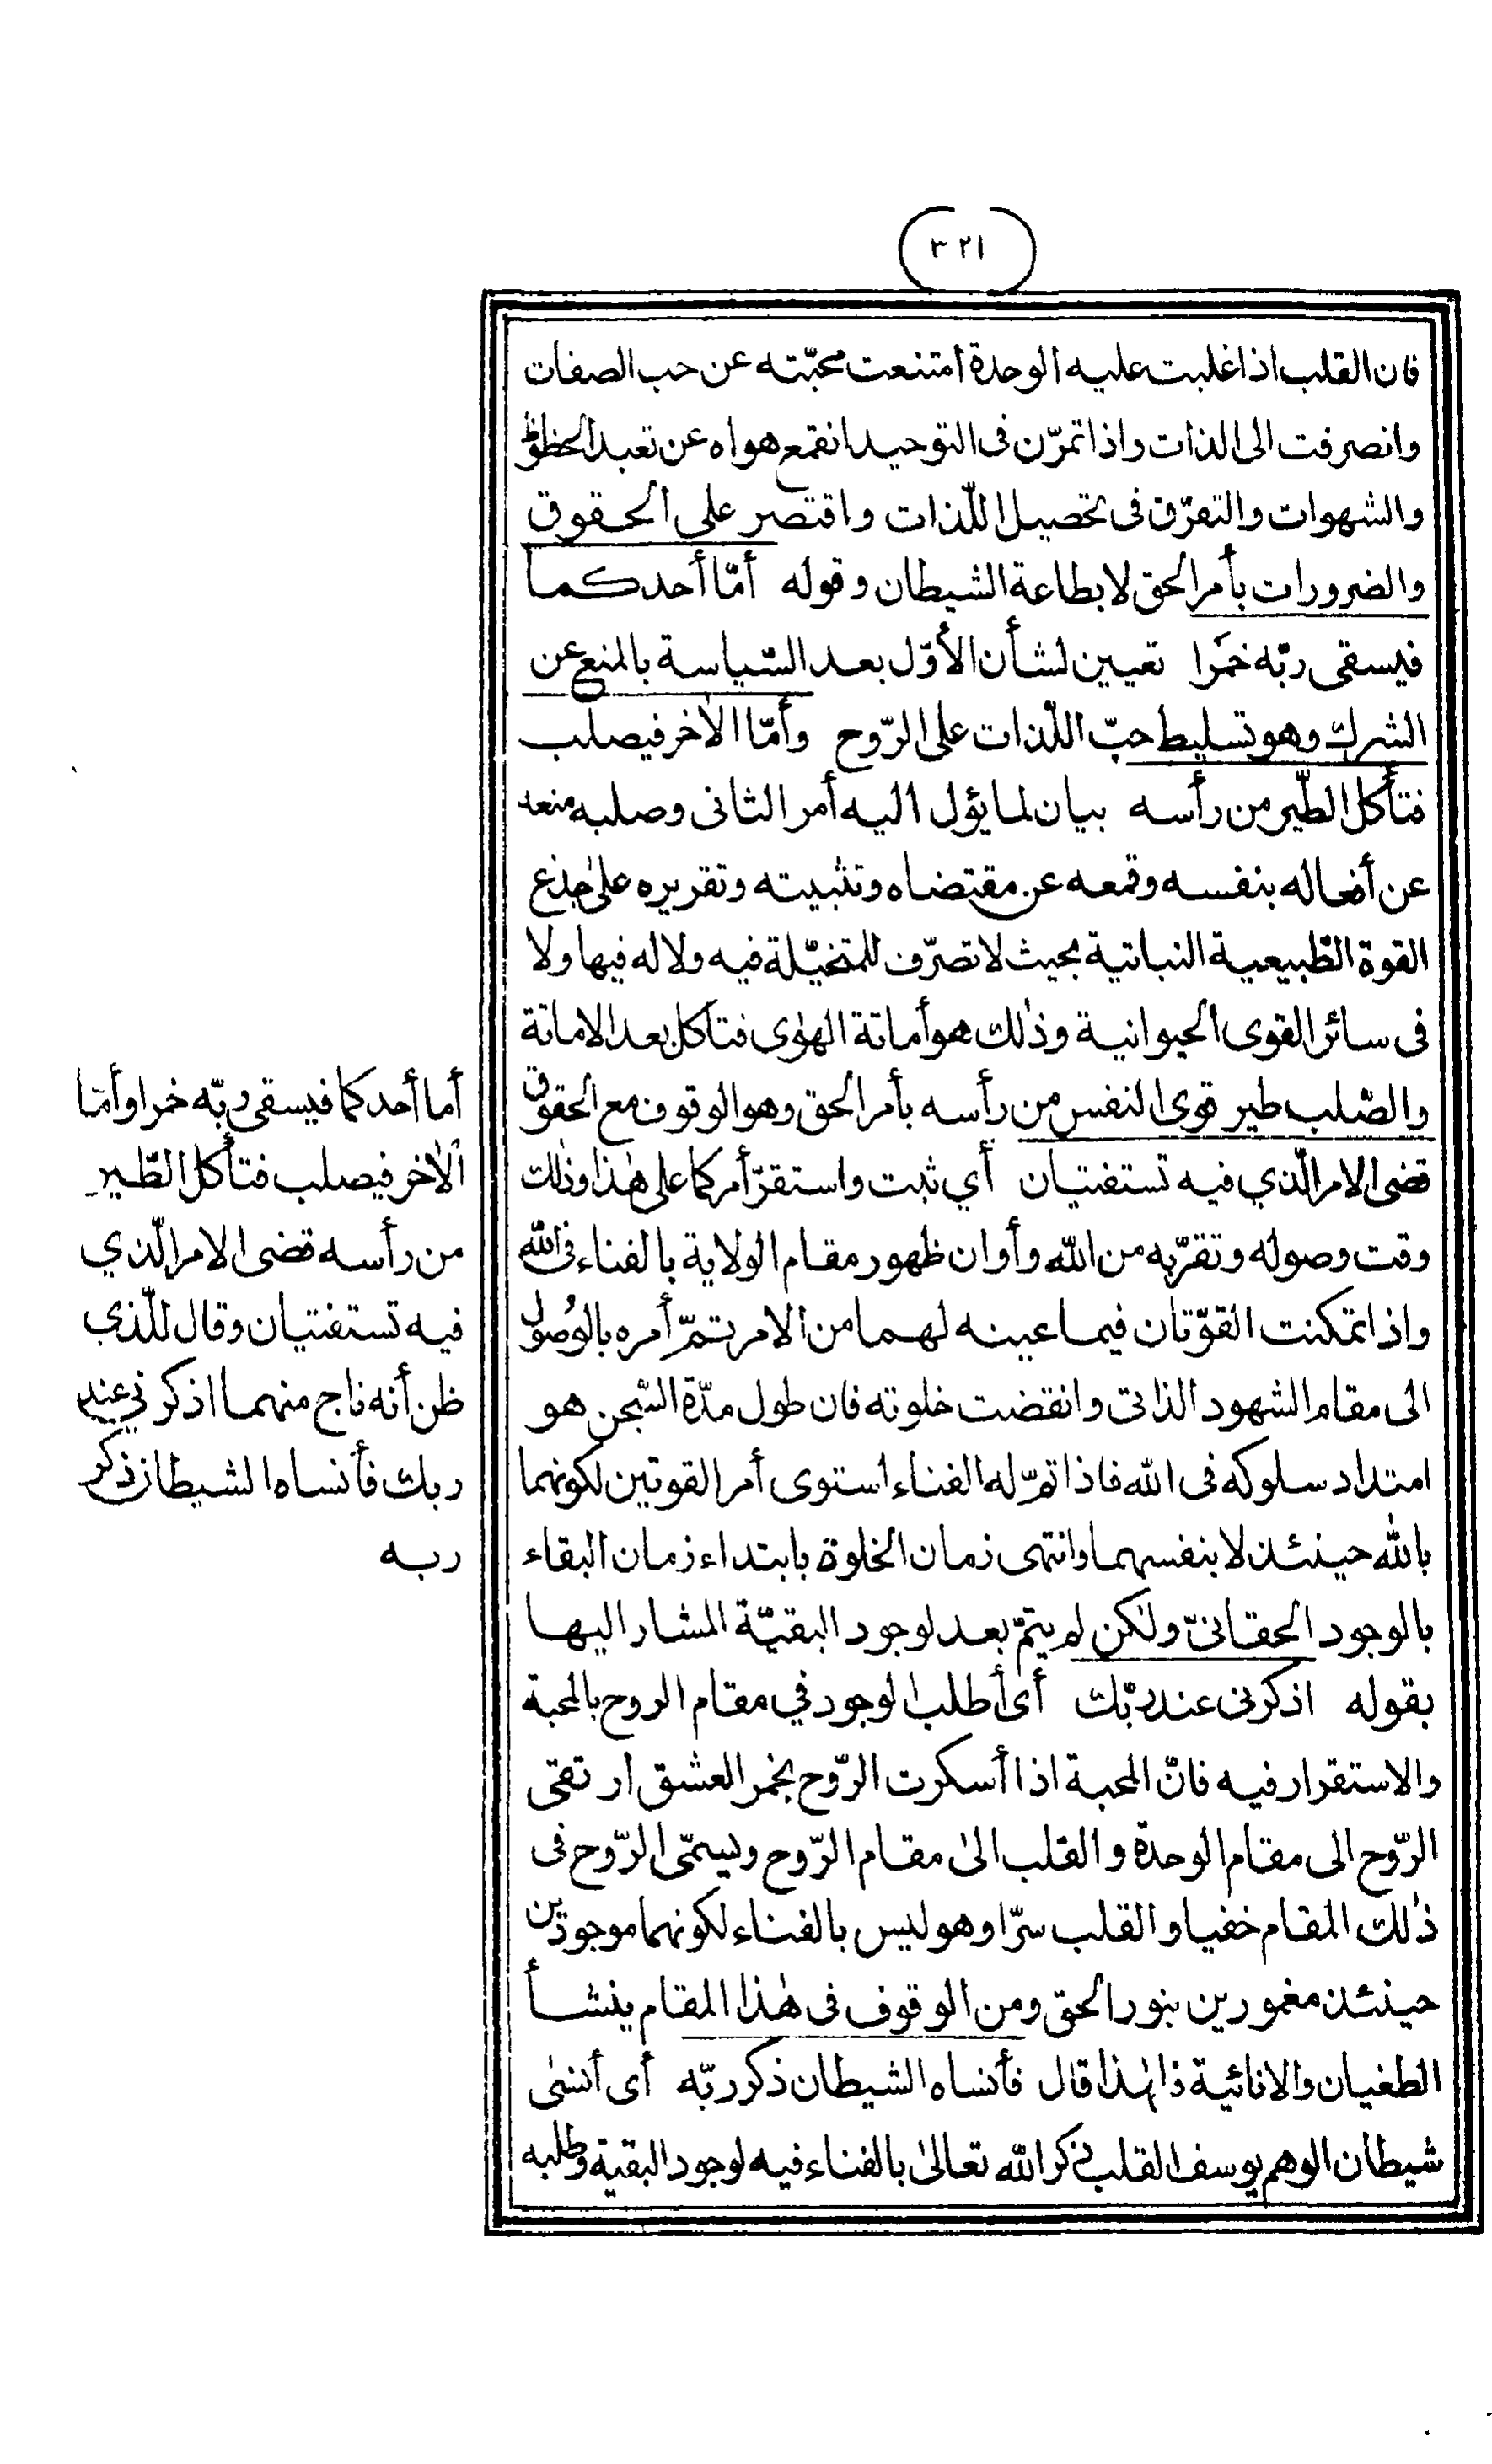 ٣٢١
فان القلب اذا غلبت عليه الوحدة امتنعت محبّته عن حب الصفات
وانصرفت الى الذات واذا تمرّن فى التوحيد انقمع هواه عن تعبد الحظوظ
والشهوات والتفرّق فى تحصيل اللّذات واقتصر على الحقوق
والضرورات بأمر الحق لا بطاعة الشيطان وقوله أمّا أحدكما
فيسقى ربّه خمرا تعيين لشأن الأوّل بعد السّياسة بالمنع عن
الشرك وهو تسليط حبّ اللّذات على الرّوح وأمّا الآخر فيصلب
فتأكل الطّير من رأسه بيان لما يؤل اليه أمر الثانى وصلبه منعه
عن أفعاله بنفسه وقمعه عن مقتضاه وتثبيته وتقريره على جذع
القوة الطّبيعية النباتية بحيث لا تصرّف للمتخيّلة فيه ولا له فيها ولا
فى سائر القوى الحيوانية وذلك هو أماتة الهوى فتأكل بعد الاماتة
والصّلب طير قوى النفس من رأسه بأمر الحق وهو الوقوف مع الحقوق
قضى الامر الّذي فيه تستفتيان أي ثبت واستقرّ أمركما على هذا وذلك
وقت وصوله وتقرّبه من اللّه وأوان ظهور مقام الولاية بالفناء فى اللّه
واذا تمكنت القوّتان فيما عينه لهما من الامر تمّ أمره بالوُصول
الى مقام الشهود الذاتى وانقضت خلوته فان طول مدّة السّجن هو
امتداد سلوكه فى اللّه فاذا تمّ له الفناء استوى أمر القوتين لكونهما
باللّه حينئذ لا بنفسهما وانتهى زمان الخلوة بابتداء زمان البقاء
بالوجود الحقانىّ ولكن لم يتمّ بعد لوجود البقيّة المشار اليها
بقوله اذكرنى عند ربّك أى أطلب الوجود في مقام الروح بالمحبة
والاستقرار فيه فانّ المحبة اذا أسكرت الرّوح بخمر العشق ارتقى
الرّوح الى مقام الوحدة والقلب الى مقام الرّوح ويسمّى الرّوح فى
ذلك المقام خفيا والقلب سرّا وهو ليس بالفناء لكونهما موجودين
حينئذ مغمورين بنور الحق ومن الوقوف فى هذا المقام ينشأ
الطغيان والانائية فلهذا قال فأنساه الشيطان ذكر ربّه أى أنسى
شيطان الوهم يوسف القلب ذكر اللّه تعالى بالفناء فيه لوجود البقية وطلبه
أما أحدكما فيسقى ربّه خمرا وأمّا
الآخر فيصلب فتأكل الطّير
من رأسه قضى الامر الّذي
فيه تستفتيان وقال للّذي
ظن أنه ناج منهما اذكرني عند
ربك فأنساه الشيطان ذكر
ربه